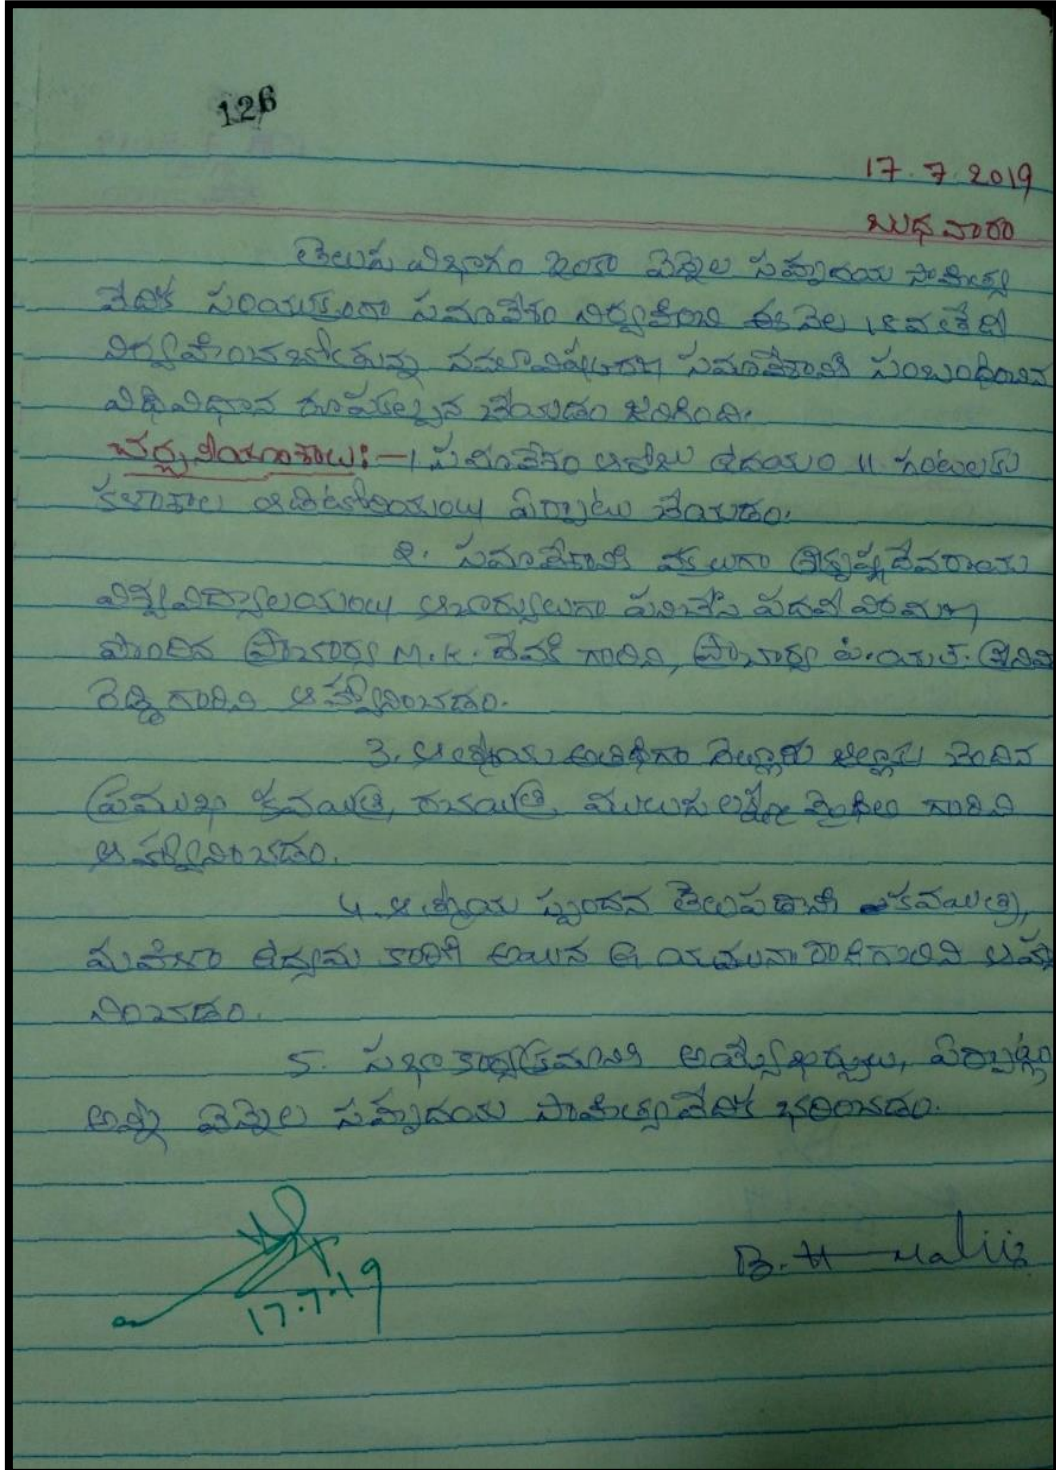 126
17.7.2019
బుధవారం
తెలుగు విభాగం ఇంకా వెన్నెల సహృదయ సాహిత్య
వేదిక సంయుక్తంగా సమావేశం నిర్వహించి ఈ నెల 18వ తేదీ
నిర్వహించబోతున్న సమావేశానికి సంబంధించిన
విధివిధాన రూపకల్పన చేయడం జరిగింది.
చర్చనీయాంశాలు :- 1. సమావేశం ఉదయం 11 గంటలకు
కళాశాల ఆడిటోరియంలో ఏర్పాటు చేయడం.
2. సమావేశానికి వక్తలుగా శ్రీకృష్ణదేవరాయ
విశ్వవిద్యాలయంలో ఆచార్యులుగా పనిచేసి పదవీ విరమణ
పొందిన ప్రాచార్య M.K. దేవకి గారిని, ప్రాచార్య
రెడ్డి గారిని ఆహ్వానించడం.
3. ఆత్మీయ అతిథిగా నెల్లూరు జిల్లాకు చెందిన
ప్రముఖ కవయిత్రి, రచయిత్రి, ములుగు లక్ష్మీ మైథిలి గారిని
ఆహ్వానించడం.
4. ఆత్మీయ స్పందన తెలుపడానికి కవయిత్రి,
మహిళా ఉద్యమ కారిణి అయిన శ్రీ యమునా రాణి గారిని ఆహ్వా
నించడం.
5. సభా కార్యక్రమానికి అయ్యే ఖర్చులు, ఏర్పాట్లు
అన్నీ వెన్నెల సహృదయ సాహిత్య వేదిక భరించడం.
17.7.19